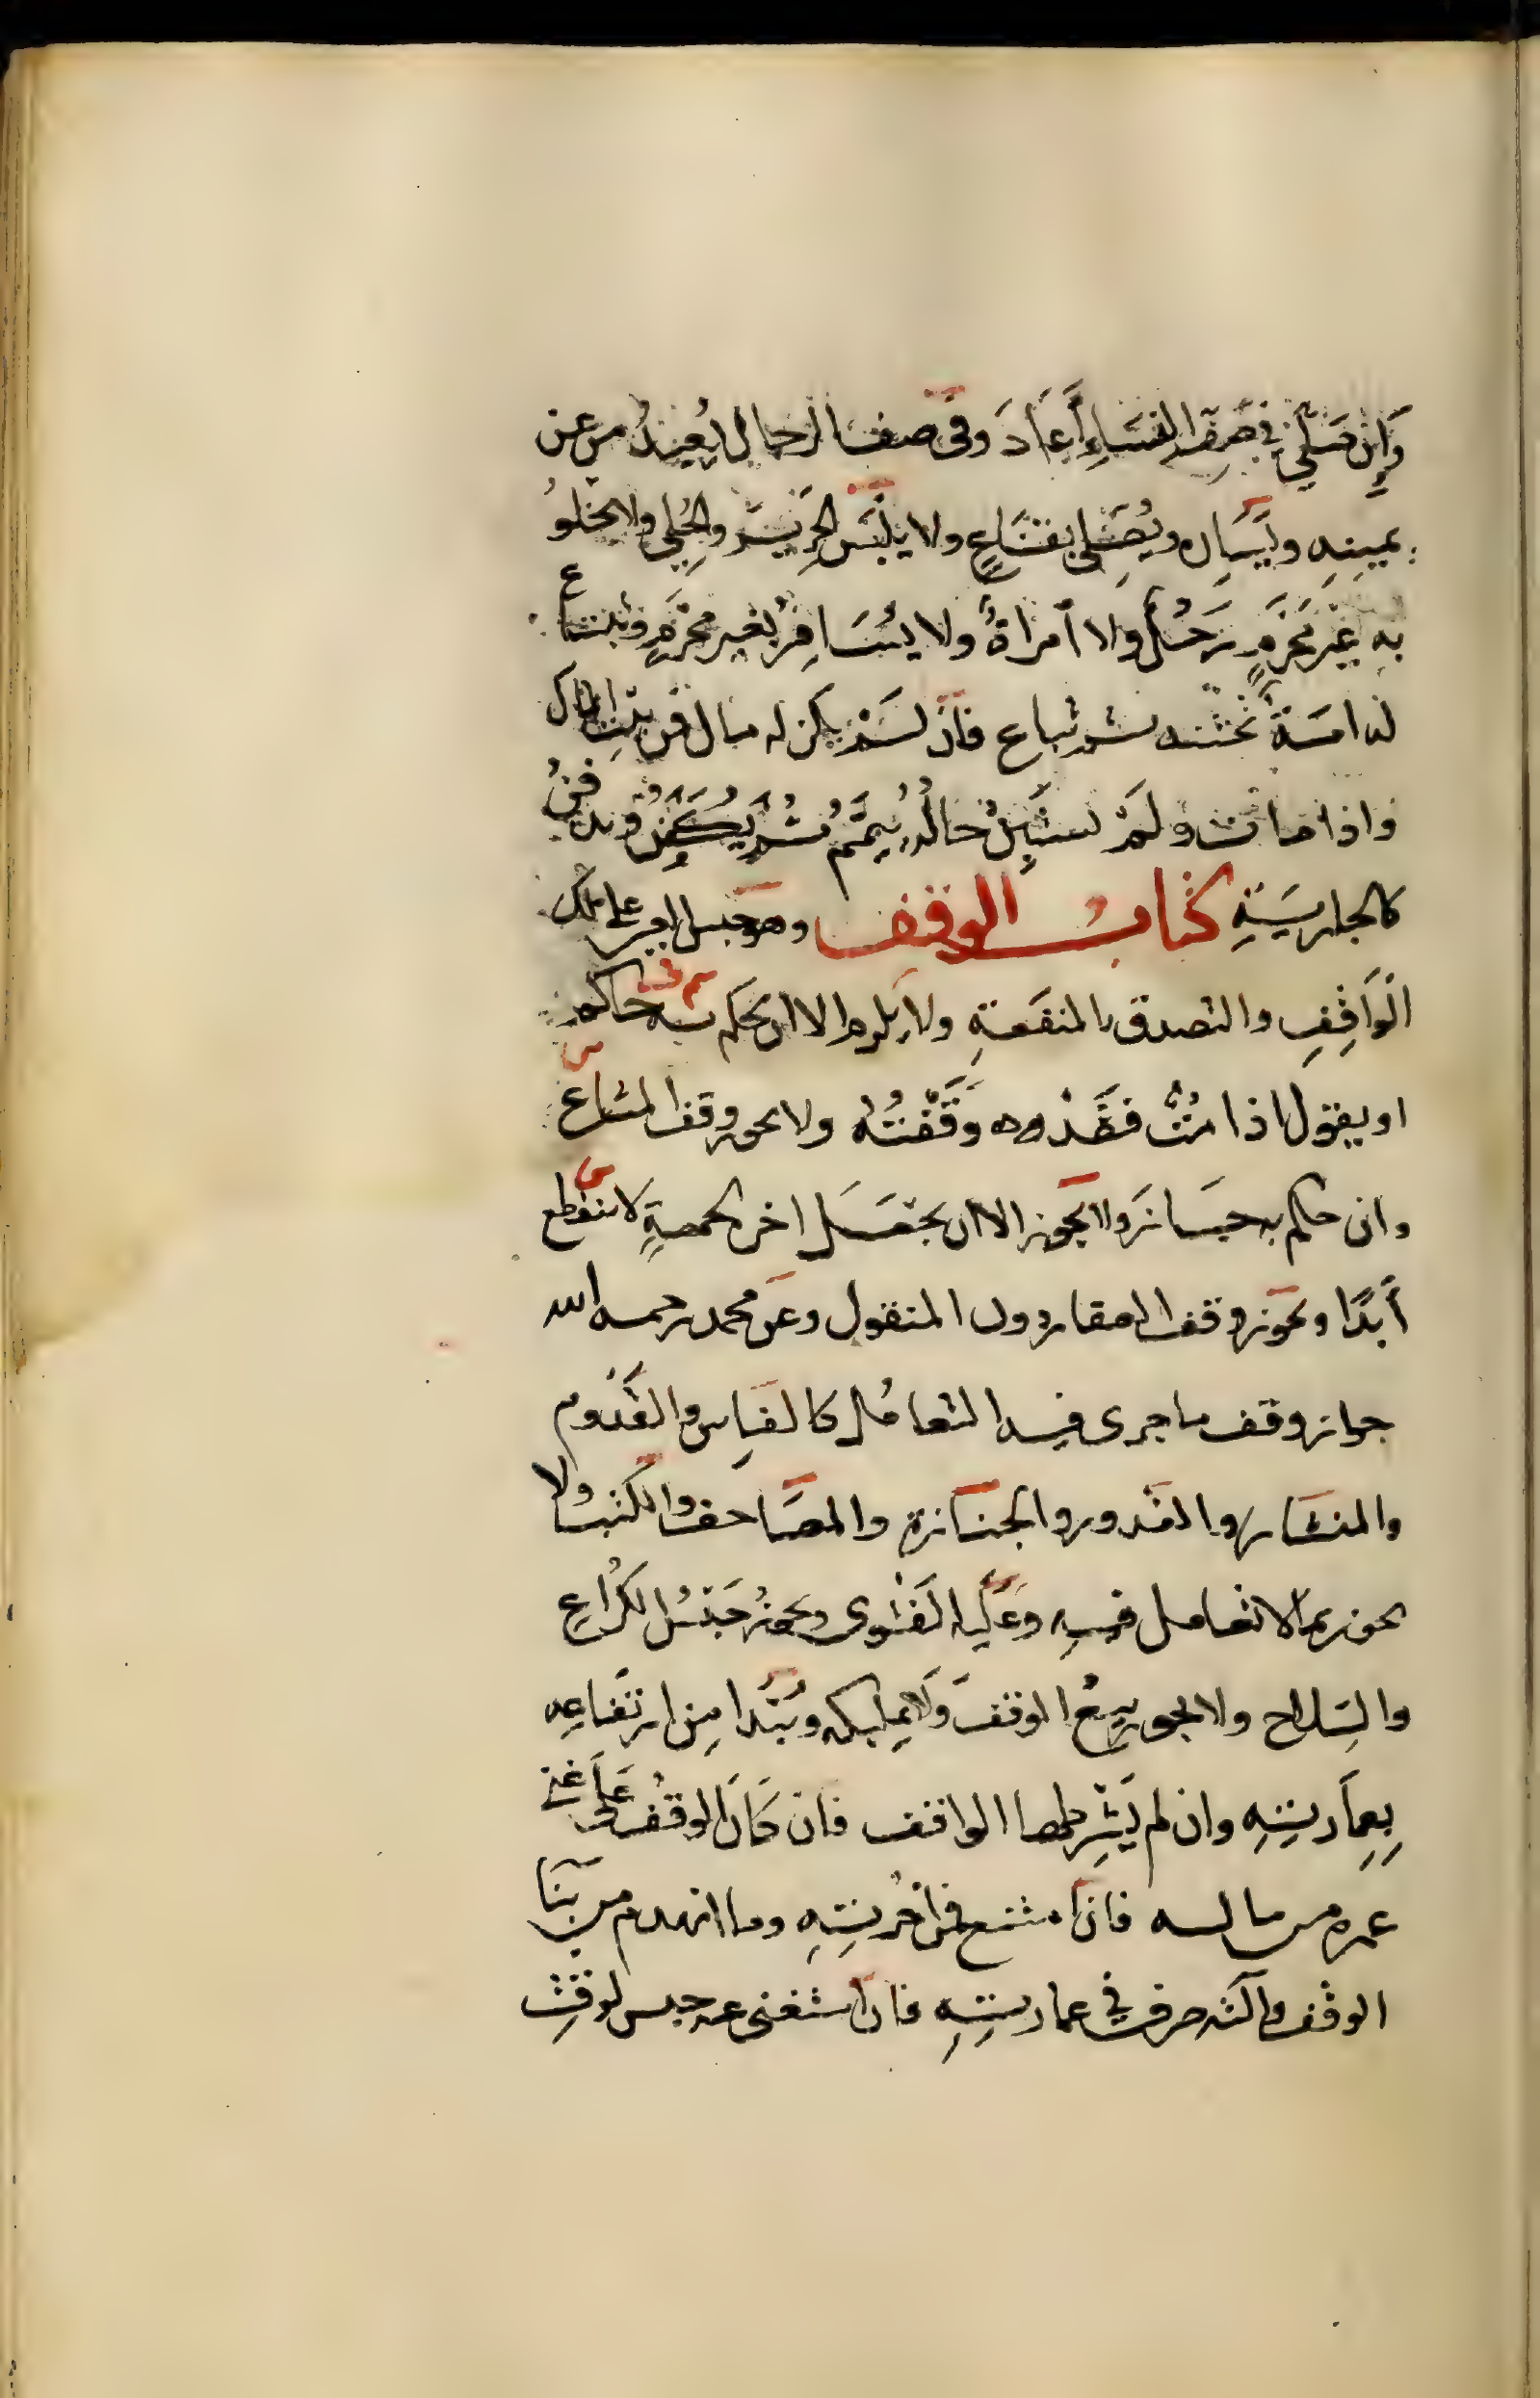 وَإِنْ صَلَّى فِي صَفِّ النِّسَاءِ أَعَادَ وفى صف الرجال يُعِيدُ من عن
يمينِهِ ويَسَارِه ويُصَلِّى بقنَاعٍ ولا يلْبَس الحَرِيرَ والحُلِي ولا يخلُو
بهِ غيْر مَحْرَمٍ رَجُلٌ ولا امراةٌ ولا يُسَافِرُ بغير مَحْرَمٍ وتبتاع
له امَة تختنه ثم تباع فان لَمْ يكن له مال فمن بيت المال
واذا مات ولَمْ يستَبِنْ حَالُه يُيَمَّمُ ثُم يُكَفَّنُ ويدفنُ
كالجاريَةِ كتابُ الوقف وهو حبس العين على ملك
الوَاقِفِ والتصدق بالمنفَعةِ ولا يلزم الا ان يحكم به حاكم
او يقول اذا مُتُّ فقَدْ وَقَّفْتُه ولا يجوز وقف المشاع
وان حكم به جَازَ ولا يجوز الا ان يجعَل اخره لجهةٍ لا تنقطع
أَبَدًا ويجوز وقف العقار دون المنقول وعن محمد رحمه الله
جواز وقف ما جرى فيه التعامُل كالفَاس والقَدُوم
والمنشار والقدور والجنَازة والمصَاحف والكتب ولا
يجوز بما لا تعامل فيهِ وعَليه الفَتْوى ويجوزُ حَبْسُ الكُرَاعِ
والسِّلاح ولا يجوز بيعُ الوقفَ ولا تمليكه ويُبْدا مِن ارتفَاعِه
بِعِمَارتِهِ وان لم يَشْرِطها الواقف فان كَانَ الوقفُ عَلَى غني
عمره من ماله فان امتنع فمن اُجْرتِهِ وما انهدم من بنَا
الوقف وآلته صرف في عمارتِهِ فان استغنى عنه حبس لوقتِ